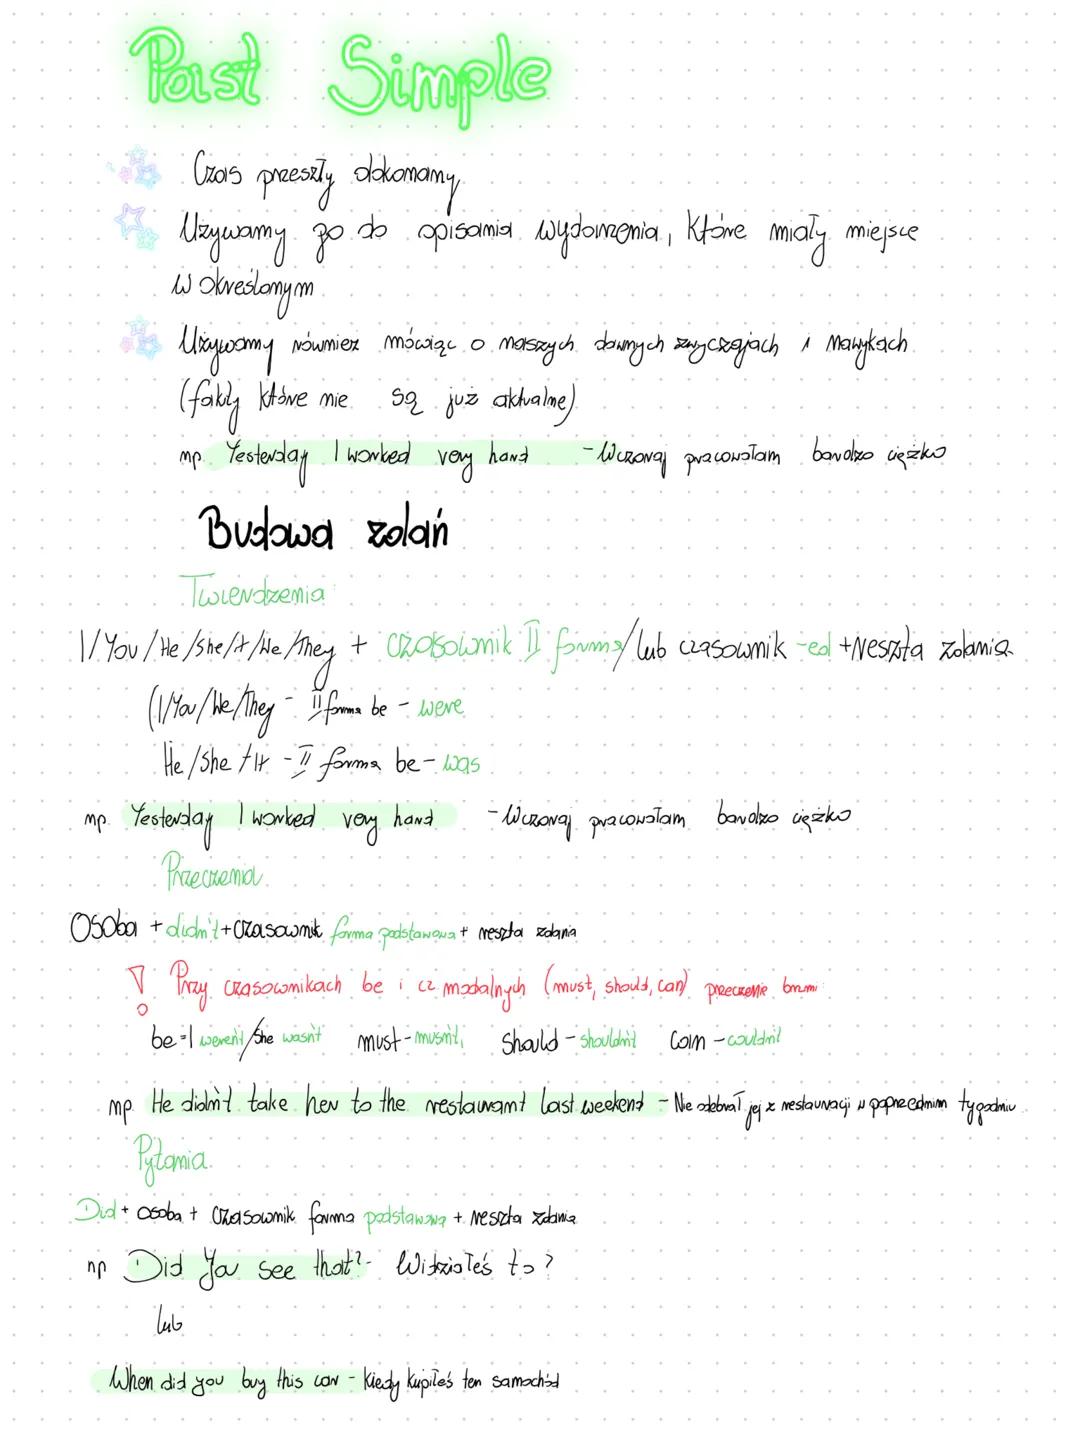 Past Simple
Czas przeszły dokonany
Używamy go do opisania wydarzenia, które miały miejsce
w określonym
Używamy również mówiąc o naszych dawnych zwyczajach i nawykach
(fakty które nie są już aktualne)
np. Yesterday I worked very hard - Wczoraj pracowałam bardzo ciężko
Budowa zdań
Twierdzenia
I/You/He/She/It/We/They + czasownik II forma/lub czasownik -ed + reszta zdania
(I/You/We/They - II forma be - were
He/She/It - II forma be - was
np. Yesterday I worked very hard - Wczoraj pracowałam bardzo ciężko
Przeczenia
Osoba + didn't + czasownik forma podstawowa + reszta zdania
! Przy czasownikach be i cz modalnych (must, should, can) przeczenie brzmi
be = I weren't/She wasn't must - musn't, should - shouldn't can - couldn't
np. He didn't take her to the restaurant last weekend - Nie odebrał jej z restauracji w poprzednim tygodniu
Pytania
Did + osoba + czasownik forma podstawowa + reszta zdania
np Did You see that? - Widziałeś to?
lub
When did you buy this car - kiedy kupiłeś ten samochód